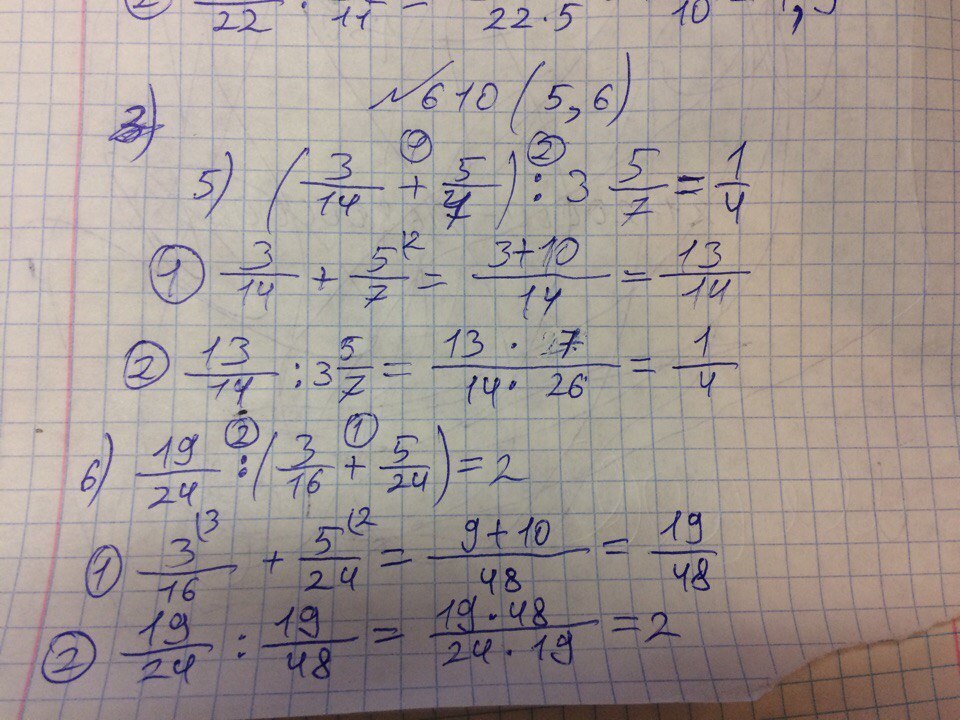 22 : 11 = 22·5 10
№610 (5,6)
5) (3/14 + 5/7) : 3 5/7 = 1/4
① 3/14 + 5/7 (2 = 3+10/14 = 13/14
② 13/14 : 3 5/7 = 13·7/14·26 = 1/4
6) 19/24 : (3/16 + 5/24) = 2
① 3/16 (3 + 5/24 (2 = 9+10/48 = 19/48
② 19/24 : 19/48 = 19·48/24·19 = 2